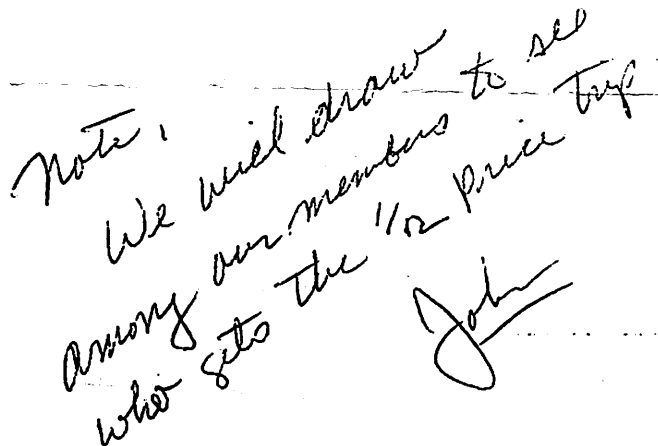 Note,
We will draw
among our members to see
who gets the 1/2 price trip
John